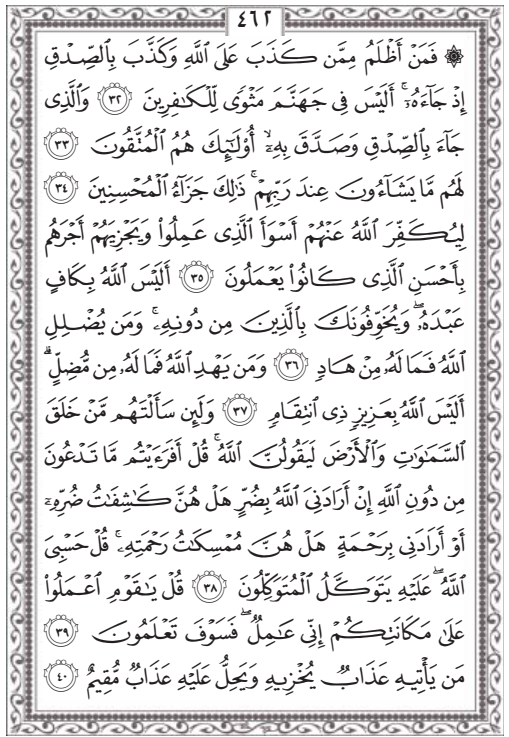 ٤٦٢
۞ فَمَنْ أَظْلَمُ مِمَّن كَذَبَ عَلَى ٱللَّهِ وَكَذَّبَ بِٱلصِّدْقِ
إِذْ جَآءَهُۥٓ ۚ أَلَيْسَ فِى جَهَنَّمَ مَثْوًى لِّلْكَٰفِرِينَ ٣٢ وَٱلَّذِى
جَآءَ بِٱلصِّدْقِ وَصَدَّقَ بِهِۦٓ ۙ أُو۟لَٰٓئِكَ هُمُ ٱلْمُتَّقُونَ ٣٣
لَهُم مَّا يَشَآءُونَ عِندَ رَبِّهِمْ ۚ ذَٰلِكَ جَزَآءُ ٱلْمُحْسِنِينَ ٣٤
لِيُكَفِّرَ ٱللَّهُ عَنْهُمْ أَسْوَأَ ٱلَّذِى عَمِلُوا۟ وَيَجْزِيَهُمْ أَجْرَهُم
بِأَحْسَنِ ٱلَّذِى كَانُوا۟ يَعْمَلُونَ ٣٥ أَلَيْسَ ٱللَّهُ بِكَافٍ
عَبْدَهُۥ ۖ وَيُخَوِّفُونَكَ بِٱلَّذِينَ مِن دُونِهِۦ ۚ وَمَن يُضْلِلِ
ٱللَّهُ فَمَا لَهُۥ مِنْ هَادٍ ٣٦ وَمَن يَهْدِ ٱللَّهُ فَمَا لَهُۥ مِن مُّضِلٍّ ۗ
أَلَيْسَ ٱللَّهُ بِعَزِيزٍ ذِى ٱنتِقَامٍ ٣٧ وَلَئِن سَأَلْتَهُم مَّنْ خَلَقَ
ٱلسَّمَٰوَٰتِ وَٱلْأَرْضَ لَيَقُولُنَّ ٱللَّهُ ۚ قُلْ أَفَرَءَيْتُم مَّا تَدْعُونَ
مِن دُونِ ٱللَّهِ إِنْ أَرَادَنِىَ ٱللَّهُ بِضُرٍّ هَلْ هُنَّ كَٰشِفَٰتُ ضُرِّهِۦٓ
أَوْ أَرَادَنِى بِرَحْمَةٍ هَلْ هُنَّ مُمْسِكَٰتُ رَحْمَتِهِۦ ۚ قُلْ حَسْبِىَ
ٱللَّهُ ۖ عَلَيْهِ يَتَوَكَّلُ ٱلْمُتَوَكِّلُونَ ٣٨ قُلْ يَٰقَوْمِ ٱعْمَلُوا۟
عَلَىٰ مَكَانَتِكُمْ إِنِّى عَٰمِلٌ ۖ فَسَوْفَ تَعْلَمُونَ ٣٩
مَن يَأْتِيهِ عَذَابٌ يُخْزِيهِ وَيَحِلُّ عَلَيْهِ عَذَابٌ مُّقِيمٌ ٤٠